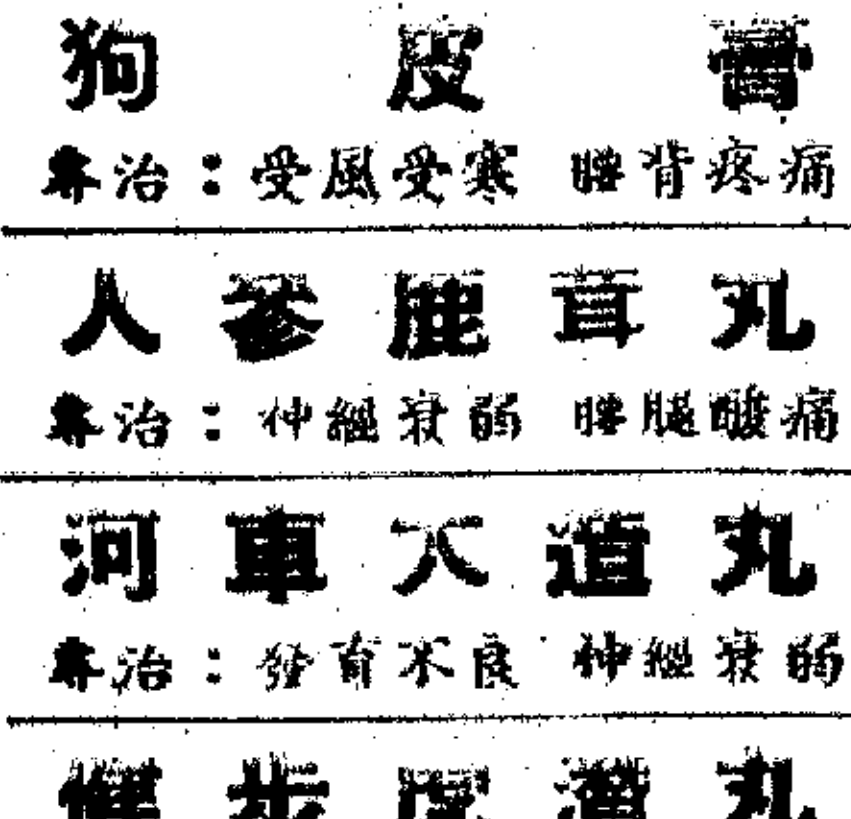 狗皮膏
專治：受風受寒 腰背疼痛
人參鹿茸丸
專治：神經衰弱 腰腿酸痛
河車大造丸
專治：發育不良 神經衰弱
健步虎潛丸